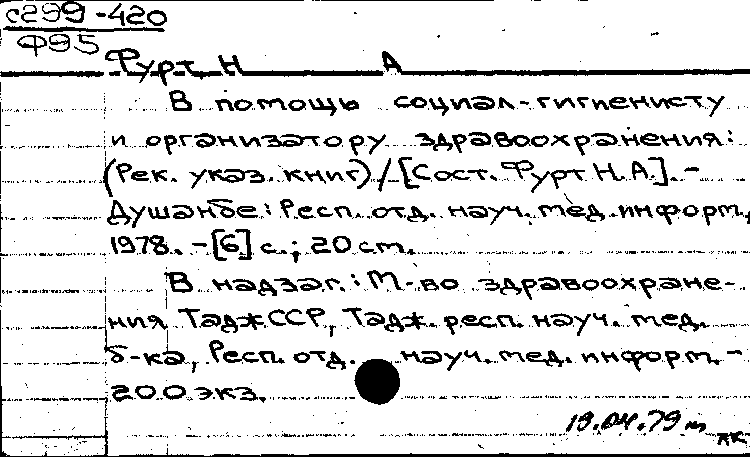 с299-420
Ф95
Фурт, Н А
В помощь социал-гигиенисту
и организатору здравоохранения:
(Рек. указ. книг) / [Сост. Фурт Н.А.]. -
Душанбе: Респ. отд. науч. мед. информ.,
1978. - [6] с.; 20 см.
В надзаг.: М-во здравоохране-
ния ТаджССР, Тадж. респ. науч. мед.
б-ка, Респ. отд. науч. мед. информ. -
200 экз.
19.04.79